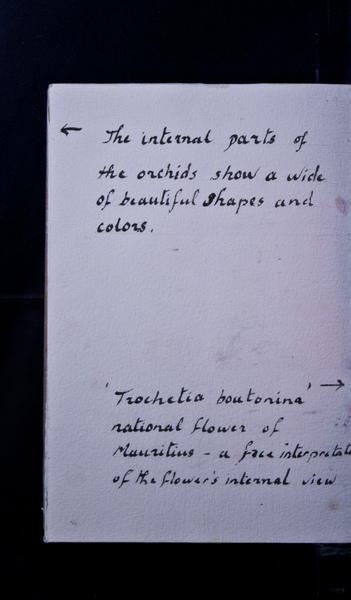 ← The internal parts of
the orchids show a wide
of beautiful shapes and
colors.
'Trochetia boutonina' →
national flower of
Mauritius - a free interpretat
of the flower's internal view